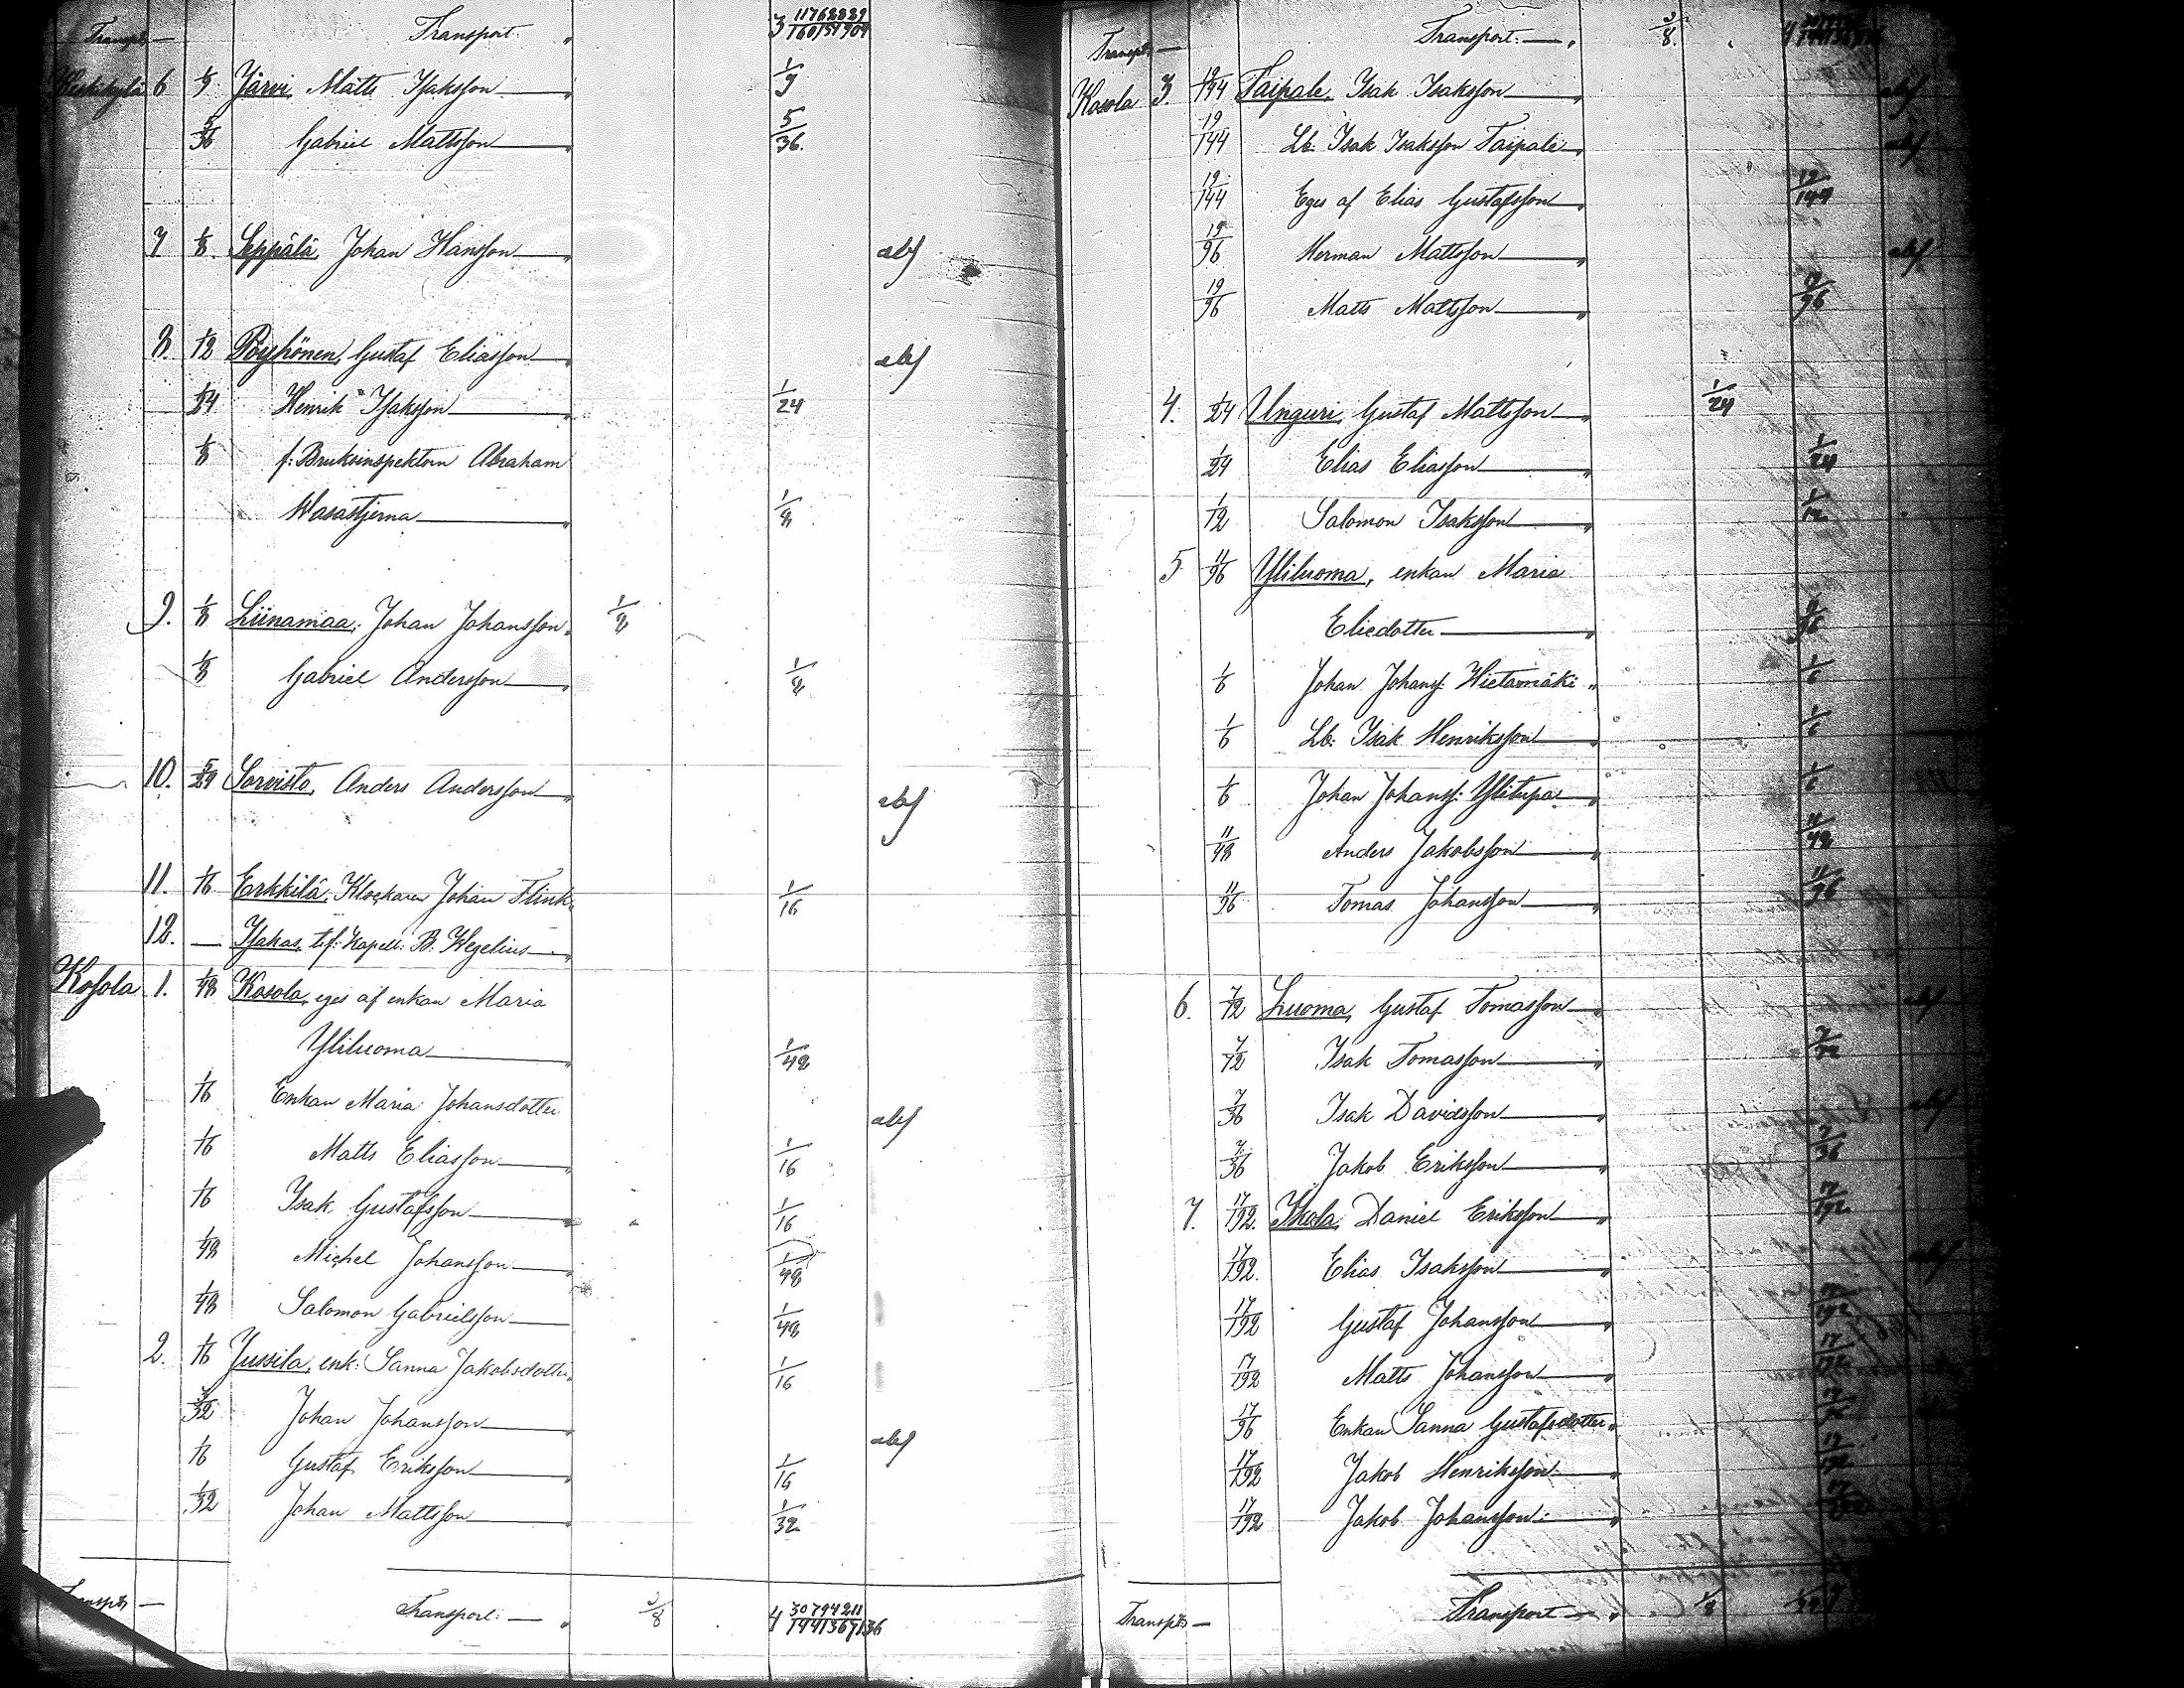 Transport — Transport. „ 3
Keskikylä 6 1/9 Järvi, Matts Isaksson — „ 1/9
5/36 Gabriel Mattsson — „ 5/36.
7 1/8. Seppälä, Johan Hansson — „ abs
8. 1/12 Pöyhönen, Gustaf Eliasson — „ abs
1/24 Henrik Isaksson — „ 1/24
1/8 f: Bruksinspektorn Abraham
Wasastjerna — „ 1/8
9. 1/8 Liinamaa, Johan Johansson „ 1/8
1/8 Gabriel Andersson — „ 1/8
10. 5/24 Sorvisto, Anders Andersson — „ abs
11. 1/16 Erkkilä, Klockaren Johan Flink „ 1/16
12. — Isakas, t.f. Kapell: B. Wegelius — „
Kosola 1. 1/48 Kosola, eges af enkan Maria
Yliluoma — „ 1/48
1/16 Enkan Maria Johansdotter abs
1/16 Matts Eliasson — „ 1/16
1/16 Isak Gustafsson — „ 1/16
1/48 Michel Johansson — „ 1/48
1/48 Salomon Gabrielsson — 1/48
2. 1/16 Jussila, enk: Sanna Jakobsdotter „ 1/16
3/32 Johan Johansson — „ abs
1/16 Gustaf Eriksson — „ 1/16
1/32 Johan Mattsson — „ 1/32
Transport: — „ 3/8 4 30794211/1441367136
Transpt — Transport. — „ 3/8.
Kosola 3. 19/144 Taipale, Isak Isaksson — „ abs
19/144 Lb: Isak Isaksson Taipale „ abs
19/144 Eges af Elias Gustafsson „ 19/144
19/96 Herman Mattsson — „ abs
19/96 Matts Mattsson — „ 19/96
4. 1/24 Unguri, Gustaf Mattsson — „ 1/24
1/24 Elias Eliasson — „ 1/24
1/12 Salomon Isaksson — „ 1/12
5 11/96 Yliluoma, enkan Maria
Eliedotter — „ 11/96
1/6 Johan Johanss: Hietamäki „ 1/6
1/6 Lb: Isak Henriksson — „ 1/6
1/6 Johan Johanss: Ylitupa „ 1/6
11/48 Anders Jakobsson — „ 11/48
11/96 Tomas Johansson — „ 11/96
6. 7/72 Luoma, Gustaf Tomasson — „ abs
7/72 Isak Tomasson — „ 7/72
7/36 Isak Davidsson — „ abs
7/36 Jakob Eriksson — „ 7/36
7. 17/192 Ikola, Daniel Eriksson — „ 17/192
17/192. Elias Isaksson — „ abs
17/192 Gustaf Johansson — „ 17/192
17/192 Matts Johansson — „ 17/192
17/96 Enkan Sanna Gustafsdotter „ 17/96
17/192 Jakob Henriksson — „ 17/192
17/192 Jakob Johansson: — „ 17/192
Transpt — Transport — „